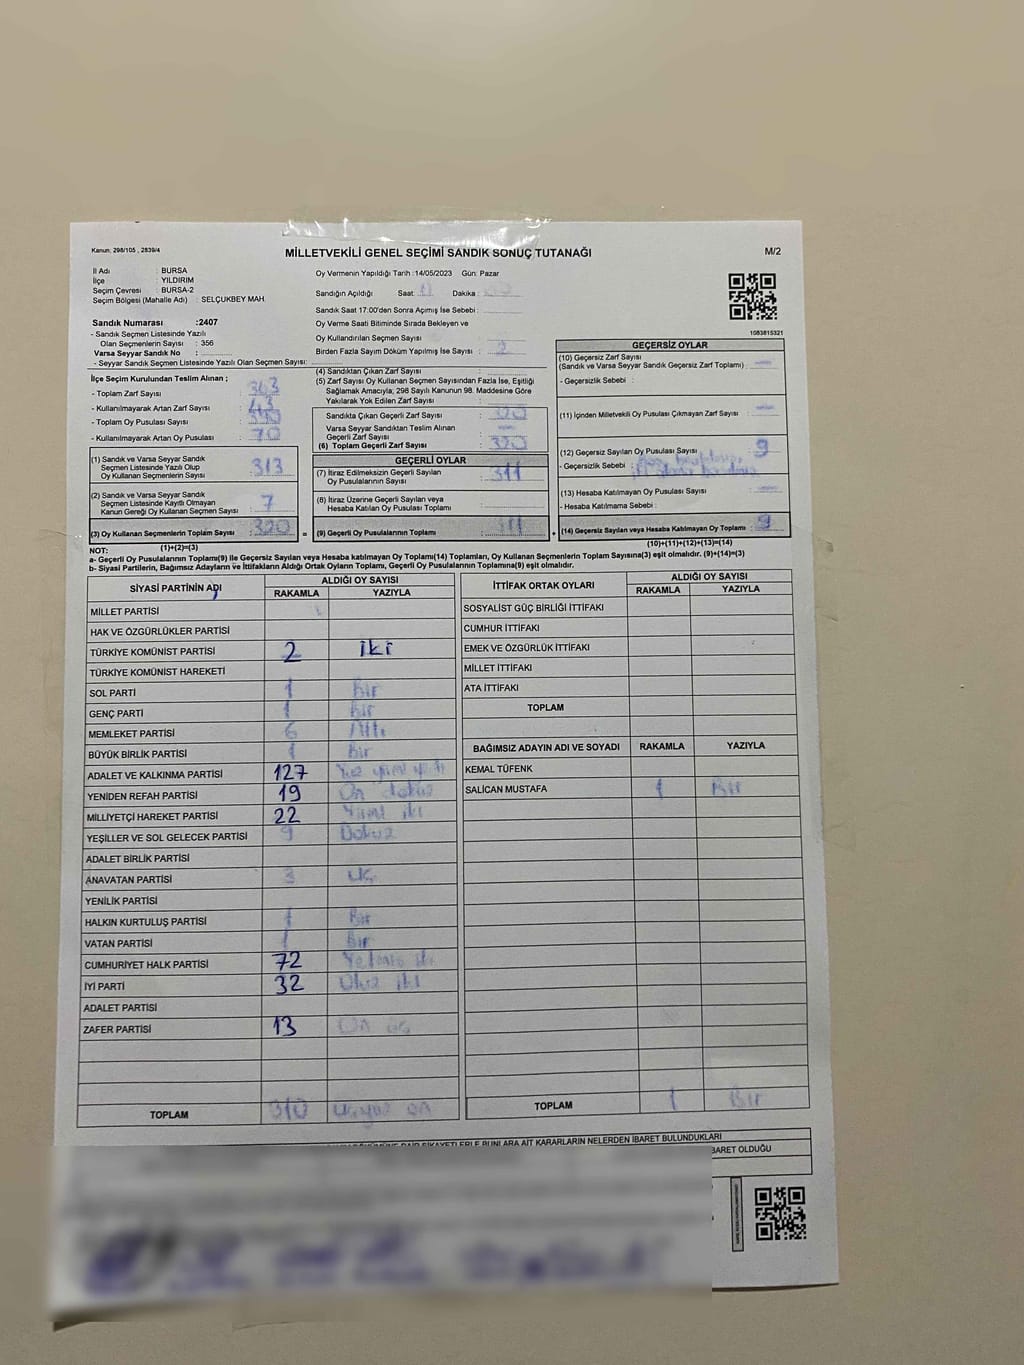 Kanun: 298/105 , 2839/4
MİLLETVEKİLİ GENEL SEÇİMİ SANDIK SONUÇ TUTANAĞI
M/2
İl Adı : BURSA
İlçe : YILDIRIM
Seçim Çevresi : BURSA-2
Seçim Bölgesi (Mahalle Adı) : SELÇUKBEY MAH
Sandık Numarası :2407
- Sandık Seçmen Listesinde Yazılı
Olan Seçmenlerin Sayısı : 356
Varsa Seyyar Sandık No :
- Seyyar Sandık Seçmen Listesinde Yazılı Olan Seçmen Sayısı:
Oy Vermenin Yapıldığı Tarih :14/05/2023 Gün: Pazar
Sandığın Açıldığı Saat: Dakika :
Sandık Saat 17:00'den Sonra Açımış İse Sebebi :
Oy Verme Saati Bitiminde Sırada Bekleyen ve
Oy Kullandırılan Seçmen Sayısı :
Birden Fazla Sayım Döküm Yapılmış İse Sayısı : 2
1083815321
İlçe Seçim Kurulundan Teslim Alınan ;
- Toplam Zarf Sayısı : 363
- Kullanılmayarak Artan Zarf Sayısı : 43
- Toplam Oy Pusulası Sayısı : 390
- Kullanılmayarak Artan Oy Pusulası : 70
(1) Sandık ve Varsa Seyyar Sandık
Seçmen Listesinde Yazılı Olup
Oy Kullanan Seçmenlerin Sayısı : 313
(2) Sandık ve Varsa Seyyar Sandık
Seçmen Listesinde Kayıtlı Olmayan
Kanun Gereği Oy Kullanan Seçmen Sayısı : 7
(3) Oy Kullanan Seçmenlerin Toplam Sayısı : 320
(1)+(2)=(3)
(4) Sandıktan Çıkan Zarf Sayısı :
(5) Zarf Sayısı Oy Kullanan Seçmen Sayısından Fazla İse, Eşitliği
Sağlamak Amacıyla, 298 Sayılı Kanunun 98. Maddesine Göre
Yakılarak Yok Edilen Zarf Sayısı :
Sandıkta Çıkan Geçerli Zarf Sayısı :
Varsa Seyyar Sandıktan Teslim Alınan
Geçerli Zarf Sayısı : —
(6) Toplam Geçerli Zarf Sayısı : 320
GEÇERLİ OYLAR
(7) İtiraz Edilmeksizin Geçerli Sayılan
Oy Pusulalarının Sayısı : 311
(8) İtiraz Üzerine Geçerli Sayılan veya
Hesaba Katılan Oy Pusulası Toplamı :
= (9) Geçerli Oy Pusulalarının Toplamı : 311
GEÇERSİZ OYLAR
(10) Geçersiz Zarf Sayısı
(Sandık ve Varsa Seyyar Sandık Geçersiz Zarf Toplamı) : —
- Geçersizlik Sebebi :
(11) İçinden Milletvekili Oy Pusulası Çıkmayan Zarf Sayısı : —
(12) Geçersiz Sayılan Oy Pusulası Sayısı : 9
- Geçersizlik Sebebi :
(13) Hesaba Katılmayan Oy Pusulası Sayısı : —
- Hesaba Katılmama Sebebi :
+ (14) Geçersiz Sayılan veya Hesaba Katılmayan Oy Toplamı : 9
(10)+(11)+(12)+(13)=(14)
NOT:
a- Geçerli Oy Pusulalarının Toplamı(9) ile Geçersiz Sayılan veya Hesaba katılmayan Oy Toplamı(14) Toplamları, Oy Kullanan Seçmenlerin Toplam Sayısına(3) eşit olmalıdır. (9)+(14)=(3)
b- Siyasi Partilerin, Bağımsız Adayların ve İttifakların Aldığı Ortak Oyların Toplamı, Geçerli Oy Pusulalarının Toplamına(9) eşit olmalıdır.
SİYASİ PARTİNİN ADI ALDIĞI OY SAYISI
RAKAMLA YAZIYLA
MİLLET PARTİSİ
HAK VE ÖZGÜRLÜKLER PARTİSİ
TÜRKİYE KOMÜNİST PARTİSİ 2 İki
TÜRKİYE KOMÜNİST HAREKETİ
SOL PARTİ 1 Bir
GENÇ PARTİ 1 Bir
MEMLEKET PARTİSİ 6 Altı
BÜYÜK BİRLİK PARTİSİ 1 Bir
ADALET VE KALKINMA PARTİSİ 127 Yüz yirmi yedi
YENİDEN REFAH PARTİSİ 19 On dokuz
MİLLİYETÇİ HAREKET PARTİSİ 22 Yirmi iki
YEŞİLLER VE SOL GELECEK PARTİSİ 9 Dokuz
ADALET BİRLİK PARTİSİ
ANAVATAN PARTİSİ 3 Üç
YENİLİK PARTİSİ
HALKIN KURTULUŞ PARTİSİ 1 Bir
VATAN PARTİSİ 1 Bir
CUMHURİYET HALK PARTİSİ 72 Yetmiş iki
İYİ PARTİ 32 Otuz iki
ADALET PARTİSİ
ZAFER PARTİSİ 13 On üç
TOPLAM 310 Üçyüz on
İTTİFAK ORTAK OYLARI ALDIĞI OY SAYISI
RAKAMLA YAZIYLA
SOSYALİST GÜÇ BİRLİĞİ İTTİFAKI
CUMHUR İTTİFAKI
EMEK VE ÖZGÜRLÜK İTTİFAKI
MİLLET İTTİFAKI
ATA İTTİFAKI
TOPLAM
BAĞIMSIZ ADAYIN ADI VE SOYADI RAKAMLA YAZIYLA
KEMAL TÜFENK
SALİCAN MUSTAFA 1 Bir
TOPLAM 1 Bir
BUNLARA AİT KARARLARIN NELERDEN İBARET BULUNDUKLARI
BARET OLDUĞU